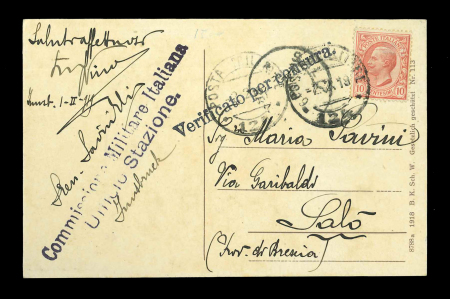 Saluti affettuosi
Innsb. 1-II-19
Innsbruck
Commissione Militare Italiana
Ufficio Stazione.
Verificato per censura.
POSTA MILITARE
POSTA MILITARE
Sig Maria Savini
Via Garibaldi
Salò
(Prov. di Brescia)
10
10
8799a 1918 B. K. Sch. W Gesetzlich geschützt Nr. 113